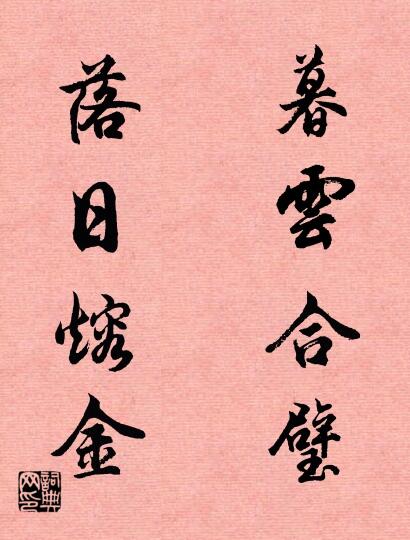 暮雲合璧
落日熔金
詞典网印